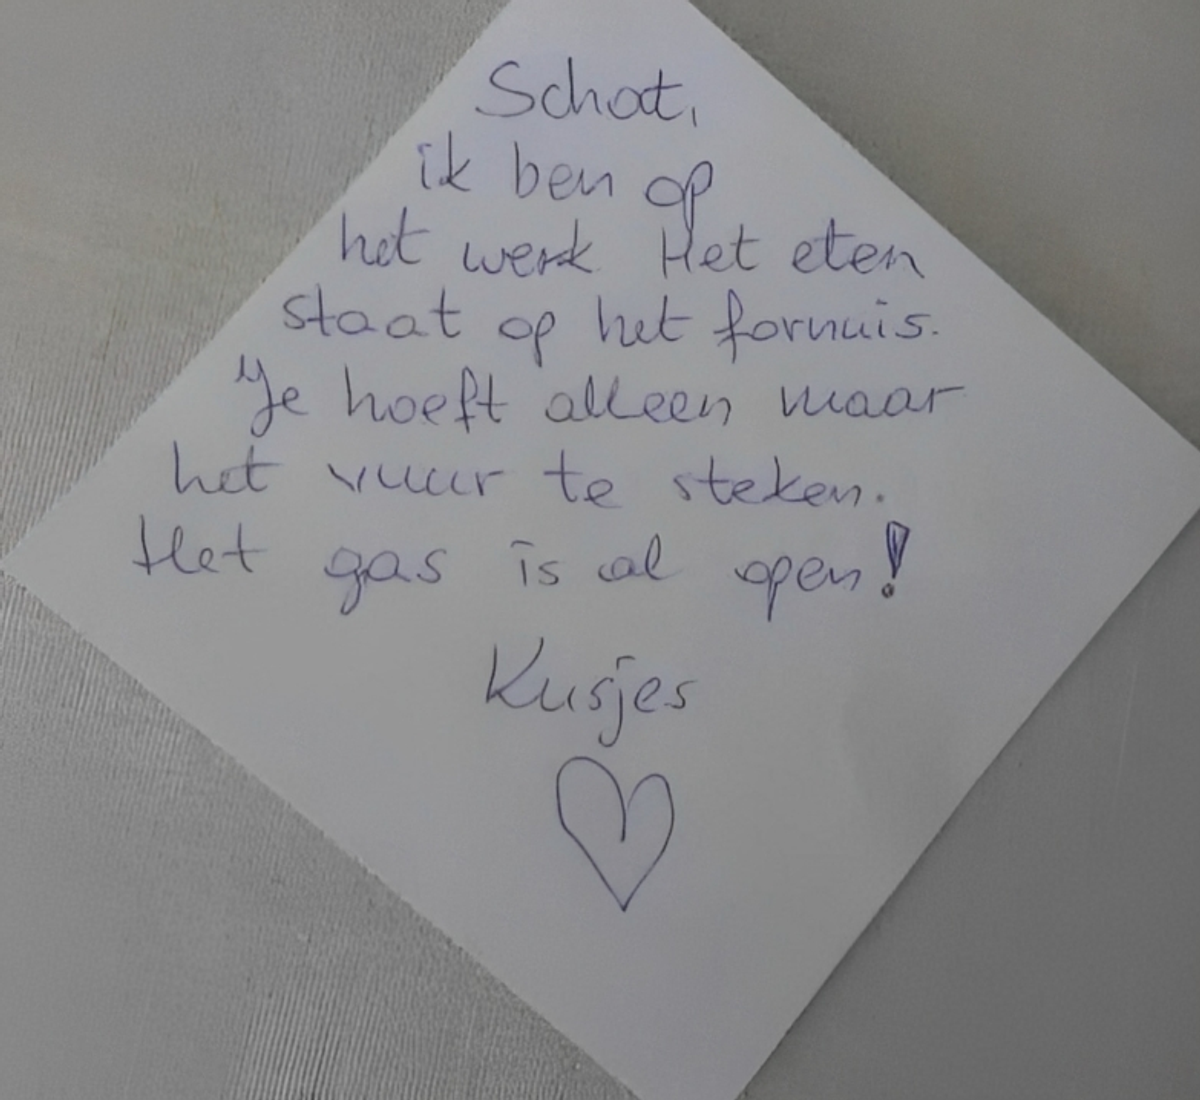 Schat,
ik ben op
het werk. Het eten
staat op het fornuis.
Je hoeft alleen maar
het vuur te steken.
Het gas is al open!
Kusjes